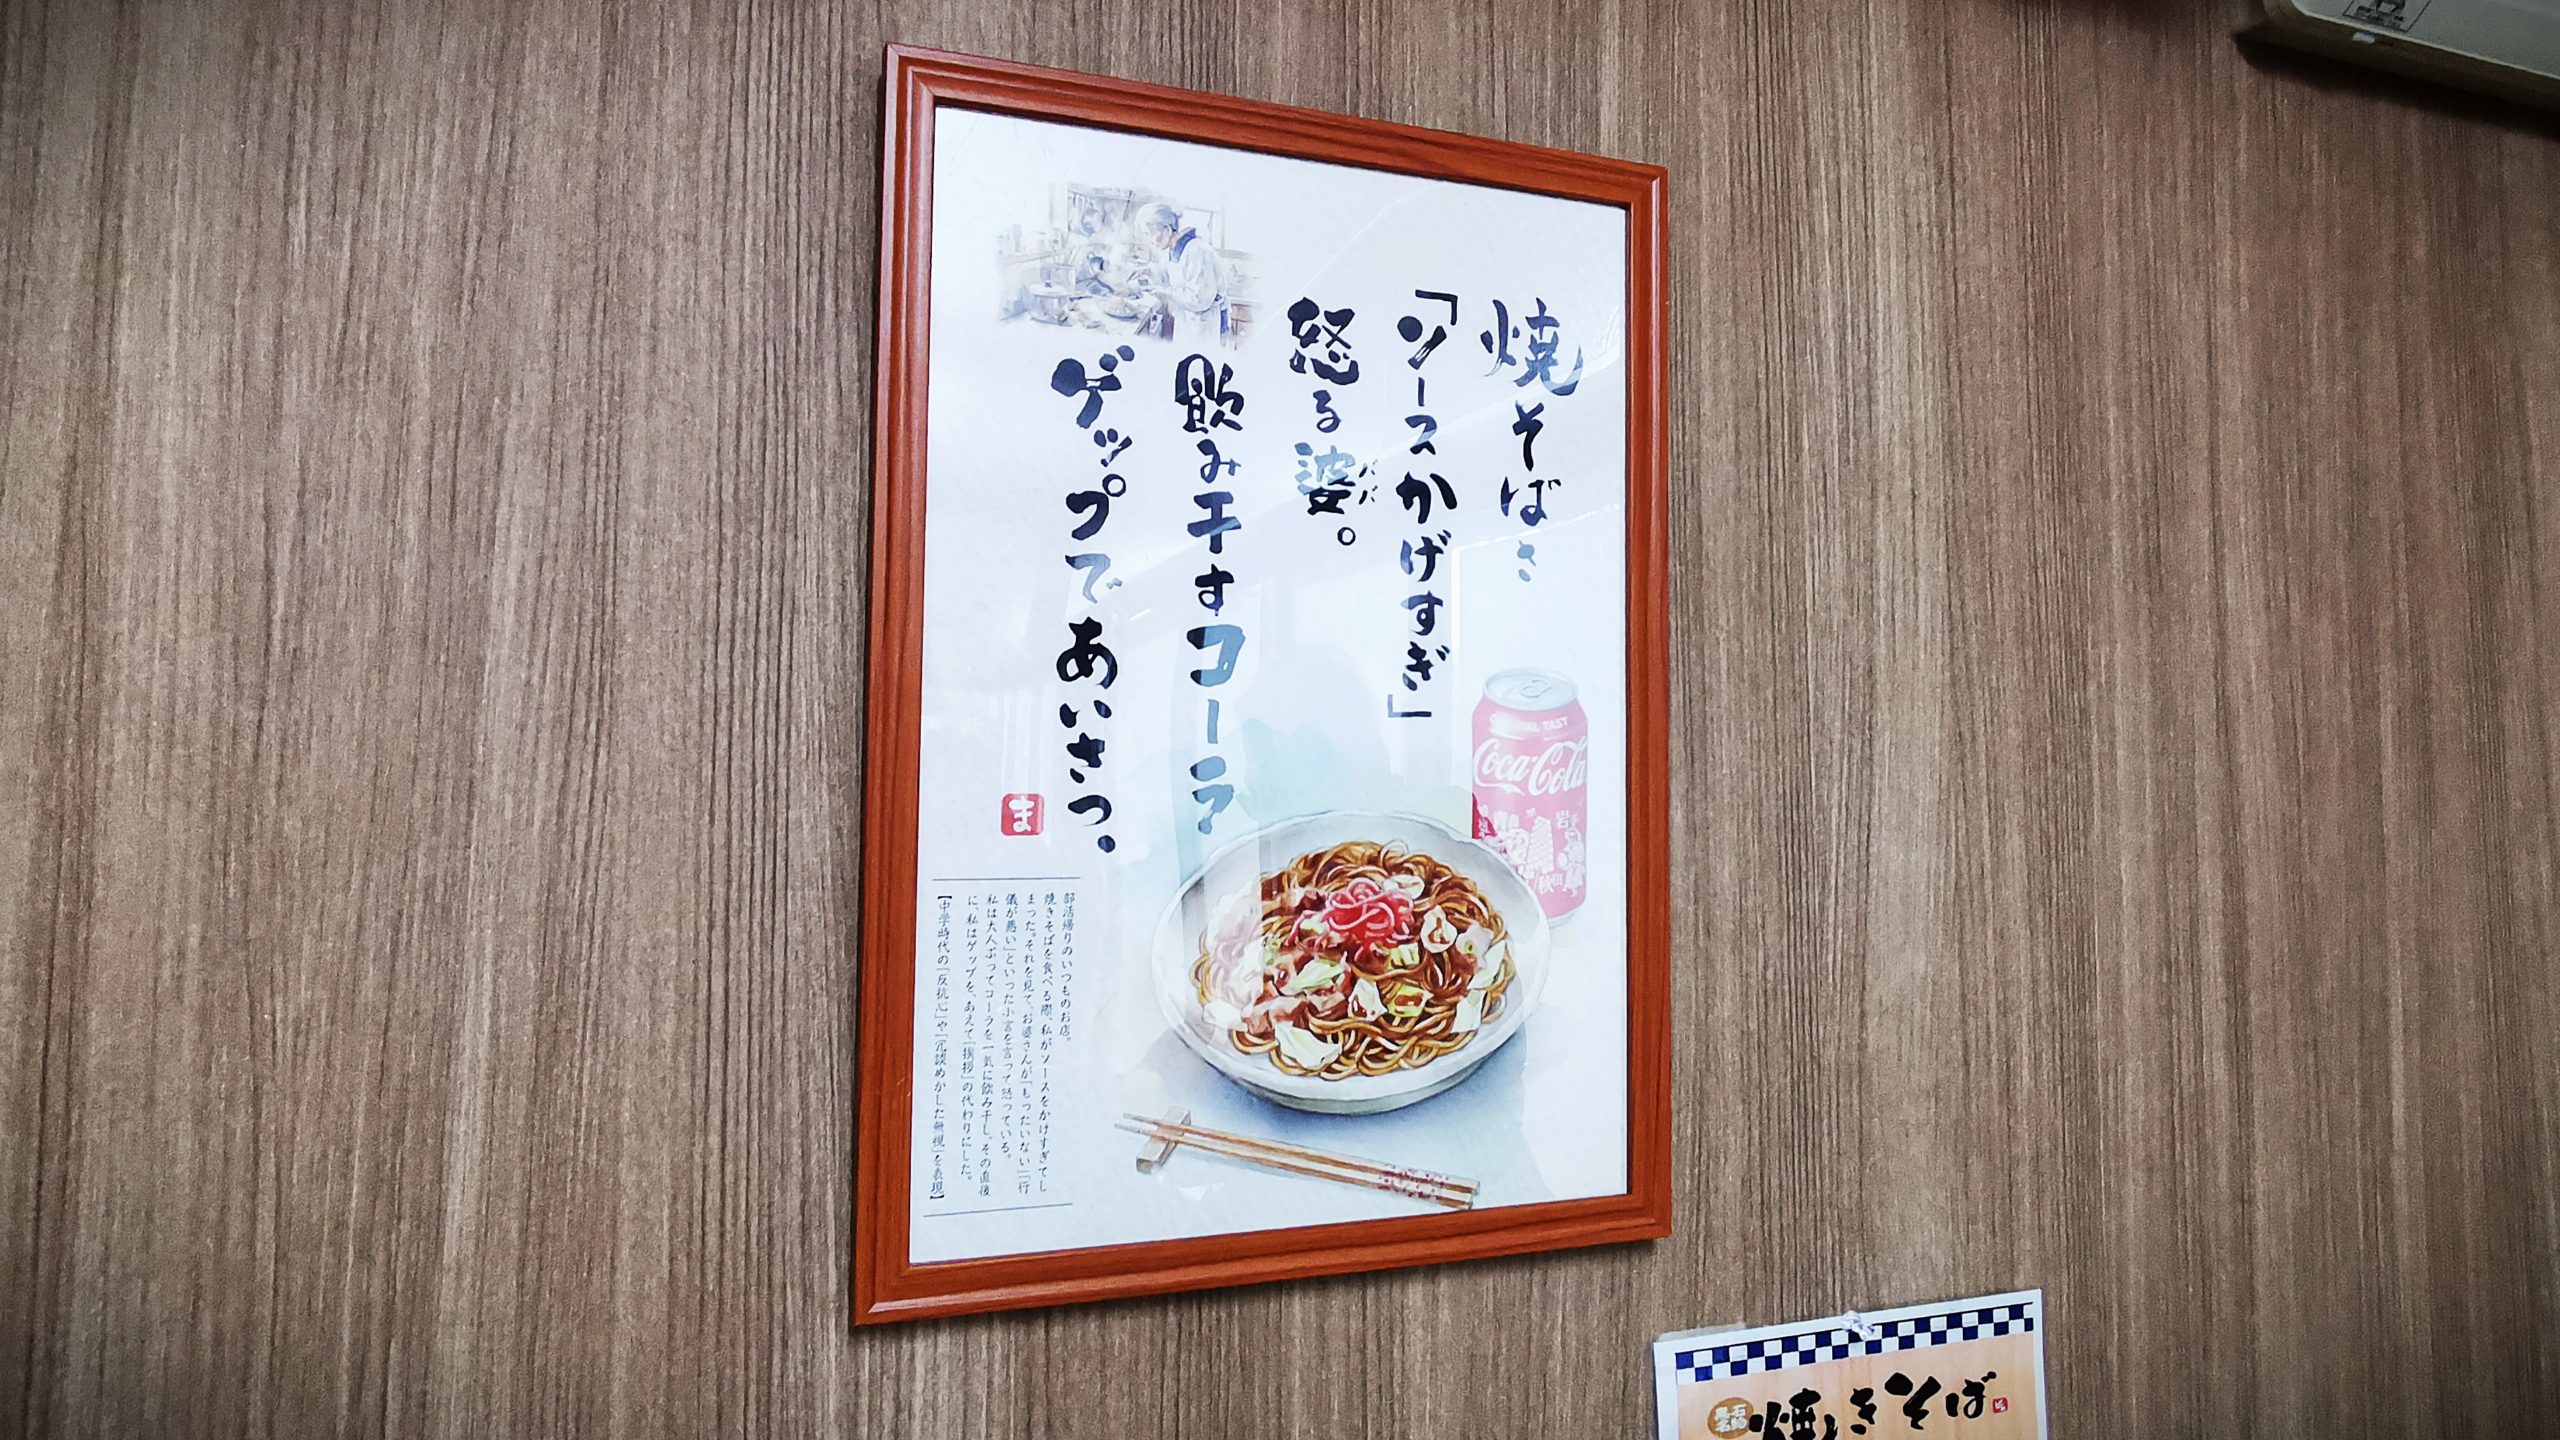 焼そばさ
「ソースかげすぎ」
怒る婆。
ババ
飲み干すコーラ
ゲップであいさつ。
ま
部活帰りのいつものお店。
焼きそばを食べる際、私がソースをかけすぎてし
まった。それを見て、お婆さんが「もったいない」「行
儀が悪い」といった小言を言って怒っている。
私は大人ぶってコーラを一気に飲み干し、その直後
に、私はゲップを、あえて「挨拶」の代わりにした。
【中学時代の「反抗心」や「冗談めかした無視」を表現】
Coca-Cola
青森
岩手
秋田
焼きそば